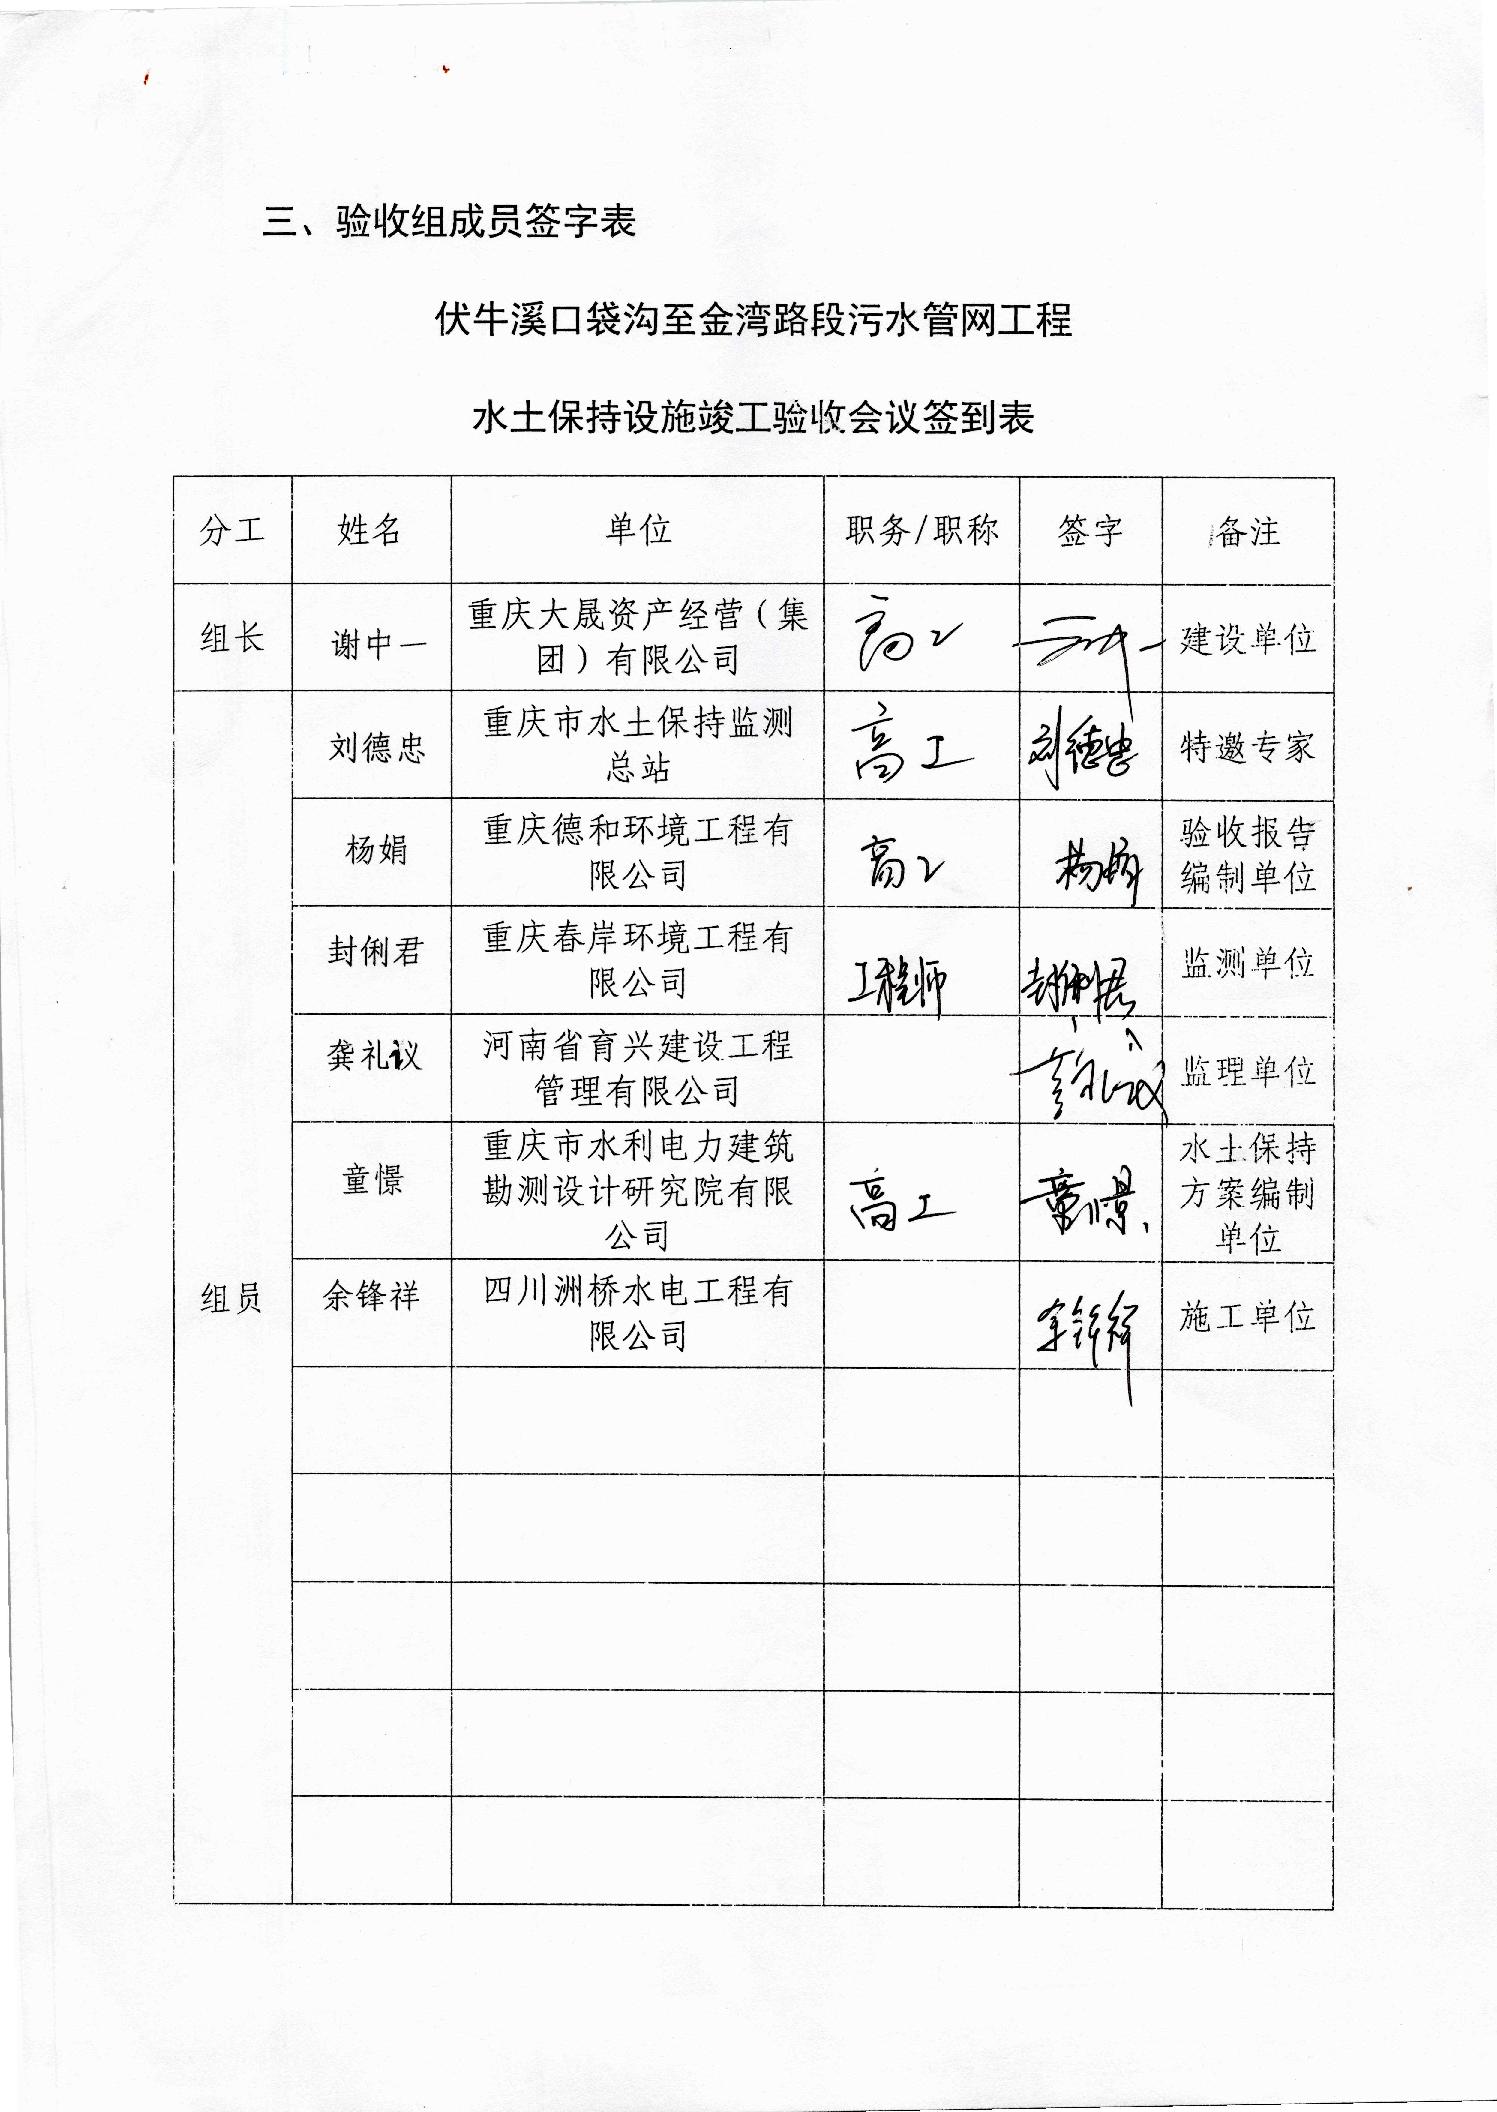 三、验收组成员签字表
伏牛溪口袋沟至金湾路段污水管网工程
水土保持设施竣工验收会议签到表
分工 姓名 单位 职务/职称 签字 备注
组长 谢中一 重庆大晟资产经营（集
团）有限公司 高工 建设单位
组员
刘德忠 重庆市水土保持监测
总站 高工 刘德忠 特邀专家
杨娟 重庆德和环境工程有
限公司 高工 杨娟 验收报告
编制单位
封俐君 重庆春岸环境工程有
限公司 工程师 封俐君 监测单位
龚礼议 河南省育兴建设工程
管理有限公司 龚礼议 监理单位
童憬 重庆市水利电力建筑
勘测设计研究院有限
公司 高工 童憬 水土保持
方案编制
单位
余锋祥 四川洲桥水电工程有
限公司 余锋祥 施工单位